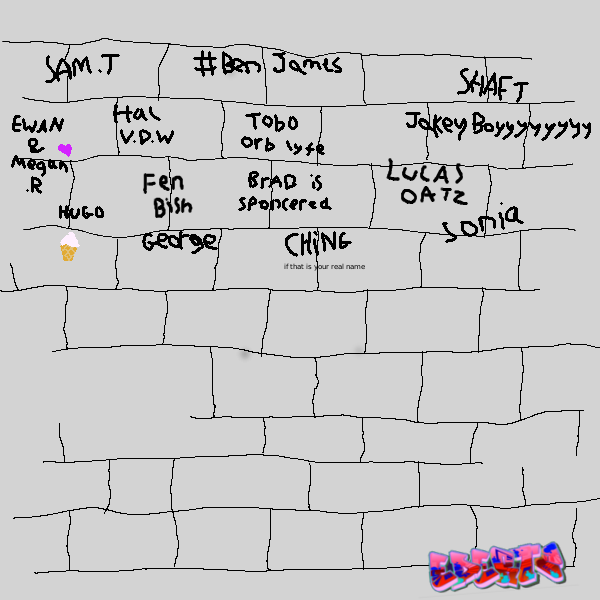 SAM.T
#Ben James
SHAFT
EWAN
&
Megan
.R
Hal
V.D.W
TOBO
Orb lyfe
Jakey Boyyyyyyyy
HUGO
Fen
Bish
BrAD is
sponcered
LUCAS
OATZ
sonia
George
CHiNG
if that is your real name